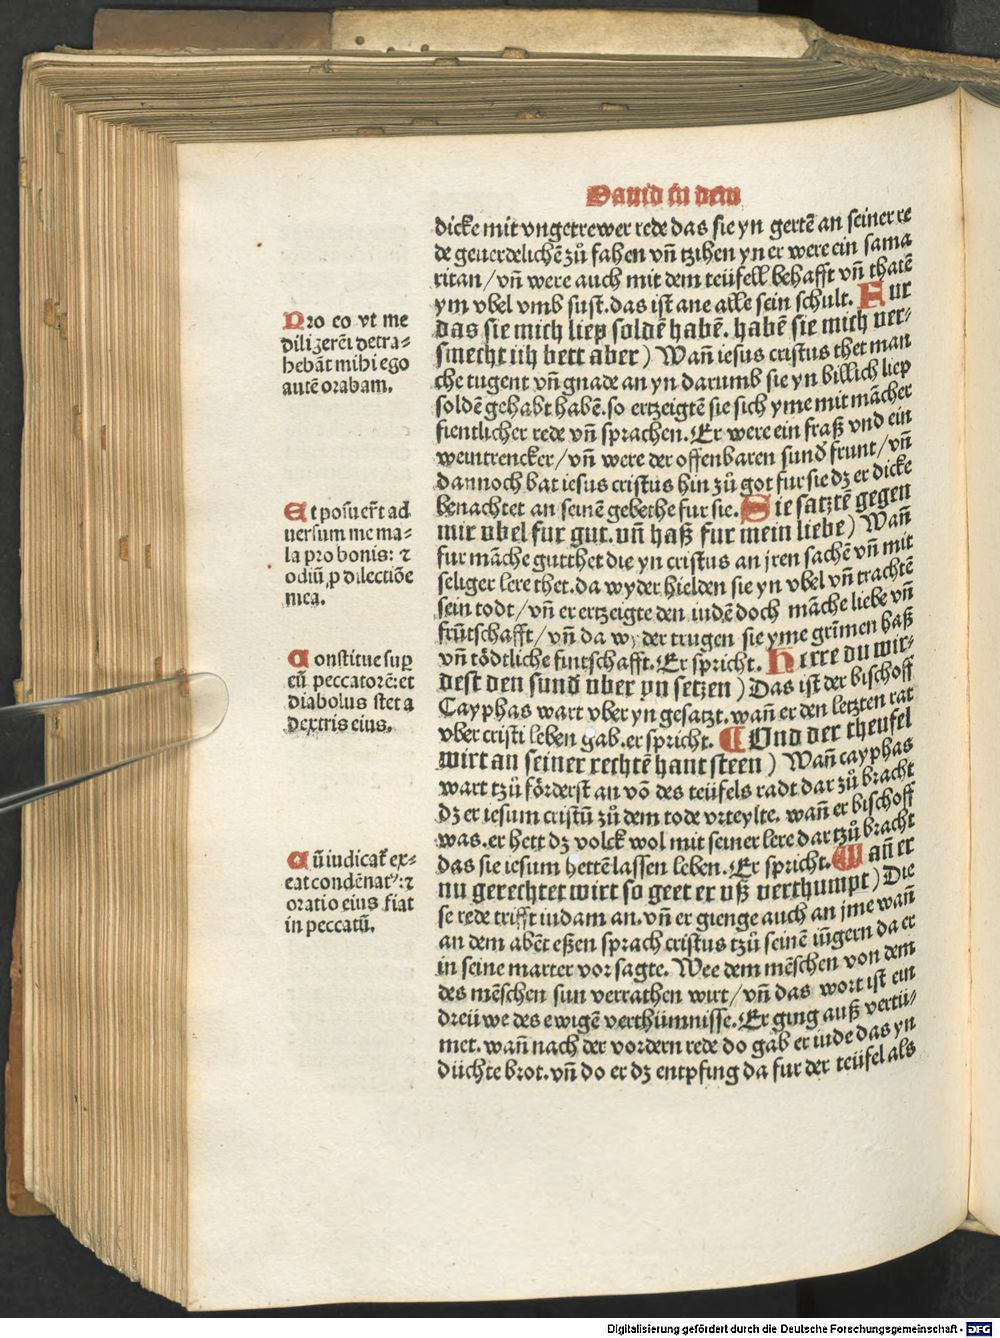 Dauid in dem
dicke mit vngetrewer rede das sie yn gertē an seiner re
de geuerdelichē zů fahen vn̄ tzihen yn er were ein sama
ritan/vn̄ were auch mit dem teüfell behafft vn̄ thatē
ym vbel vmb sust. das ist ane alle sein schult. Fur
das sie mich liep soldē habē. habē sie mich ver⸗
smecht ich bett aber) Wan̄ iesus cristus thet man
che tugent vn̄ gnade an yn darumb sie yn billich liep
soldē gehabt habē. so ertzeigtē sie sich yme mit mācher
fientlicher rede vn̄ sprachen. Er were ein fraß vnd ein
weintrencker/vn̄ were der offenbaren sund frunt/vn̄
dannoch bat iesus cristus hin zů got fur sie dz er dicke
benachtet an seinē gebethe fur sie. Sie satztē gegen
mir vbel fur gut. vn̄ haß fur mein liebe) Wan̄
fur māche gutthet die yn cristus an jren sachē vn̄ mit
seliger lere thet. da wyder hielden sie yn vbel vn̄ trachtē
sein todt/vn̄ er ertzeigte den iudē doch māche liebe vn̄
frūtschafft/vn̄ da wyder trugen sie yme grīmen haß
vn̄ tödtliche fintschafft. Er spricht. Hirre du wir⸗
dest den sund vber yn setzen) Das ist der bischoff
Cayphas wart vber yn gesatzt. wan̄ er den letzten rat
vber cristi leben gab. er spricht. Und der theufel
wirt an seiner rechtē hant steen) Wan̄ cayphas
wart tzů förderst an vō des teüfels radt dar zů bracht
dz er iesum cristū zů dem tode vrteylte. wan̄ er bischoff
was. er hett dz volck wol mit seiner lere dar tzů bracht
das sie iesum hettē lassen leben. Er spricht. Wan̄ er
nu gerechtet wirt so geet er vß verthumpt) Die
se rede trifft iudam an. vn̄ er gienge auch an jme wan̄
an dem abēt eßen sprach cristus tzů seinē iūgern da er
in seine marter vor sagte. Wee dem mēschen von dem
des mēschen sun verrathen wirt/vn̄ das wort ist ein
dreüwe des ewigē verthümnisse. Er ging auß vertü⸗
met. wan̄ nach der vordern rede do gab er iude das yn
düchte brot. vn̄ do er dz entpfing da fur der teüfel als
Pro eo vt me
diligerēt detra⸗
hebāt mihi ego
autē orabam.
Et posuerūt ad
uersum me ma⸗
la pro bonis: ⁊
odiū p dilectiōe
mea.
Constitue sup
eū peccatorē: et
diabolus stet a
dextris eius.
Cū iudicat ex⸗
eat condēnatꝰ: ⁊
oratio eius fiat
in peccatū.
Digitalisierung gefördert durch die Deutsche Forschungsgemeinschaft - DFG